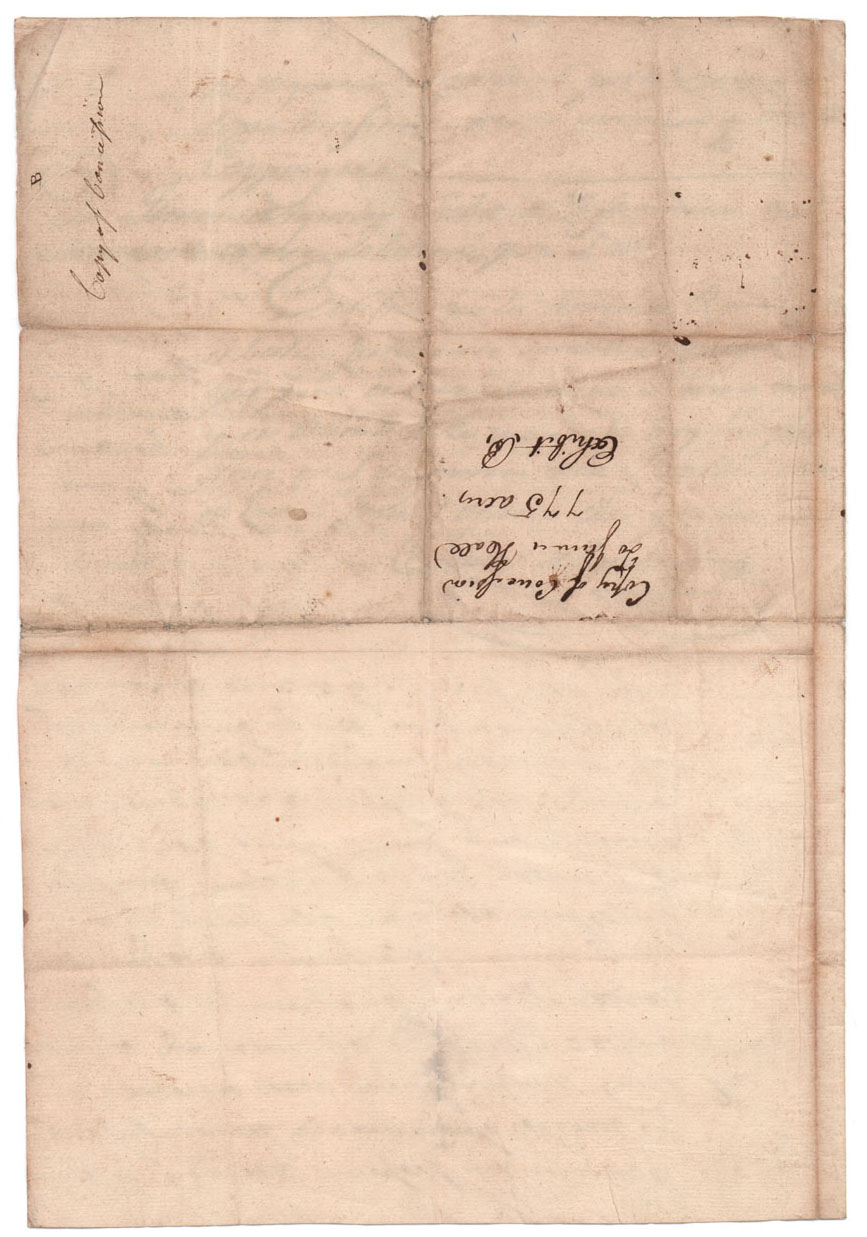 B
Copy of Concession
Copy of Concession
to James Hall
775 acres
Exhibit B,